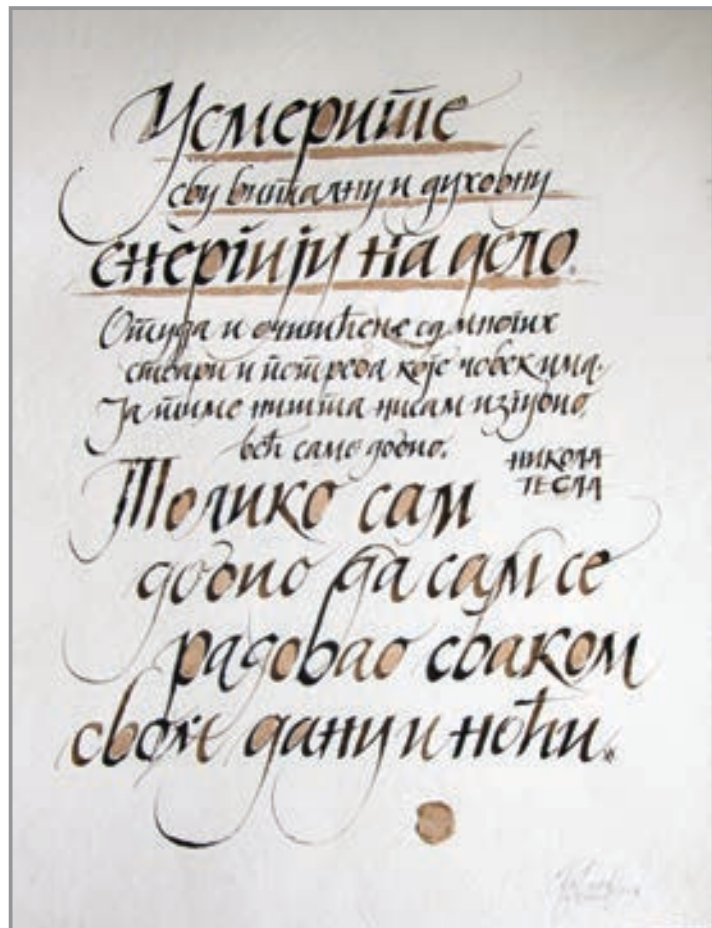 Усмерите
сву виталну и духовну
енергију на дело.
Отуда и очишћење од многих
ствари и потреба које човек има.
Ја тиме ништа нисам изгубио,
већ само добио.
НИКОЛА
ТЕСЛА
Толико сам
добио да сам се
радовао сваком
своме дану и ноћи.